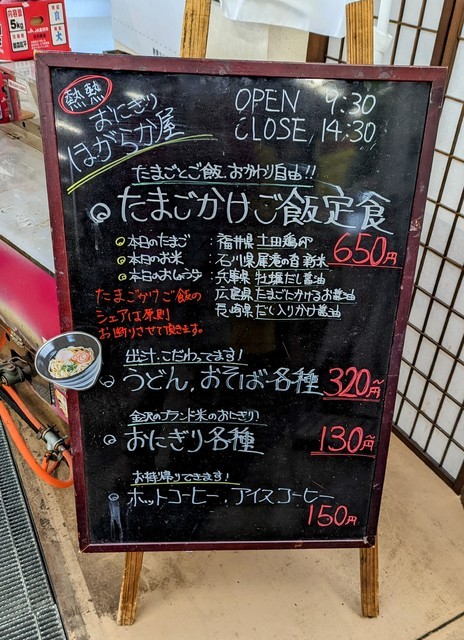 熱熱
おにぎり
ほがらか屋
OPEN 9:30
CLOSE 14:30
たまごとご飯 おかわり自由!!
たまごかけご飯定食
650円
本日のたまご:福井県 土田鶏卵
本日のお米:石川県 新米
本日のおしょうゆ:兵庫県 牡蠣だし醤油
広島県 たまごにかけるお醤油
長崎県 だし入りかけ醤油
たまごかけご飯の
シェアは原則
お断りさせて頂きます。
出汁、こだわってます!
うどん、おそば各種 320円~
金沢のブランド米のおにぎり
おにぎり各種 130円~
お持帰りできます!
ホットコーヒー、アイスコーヒー
150円
内容量
5kg